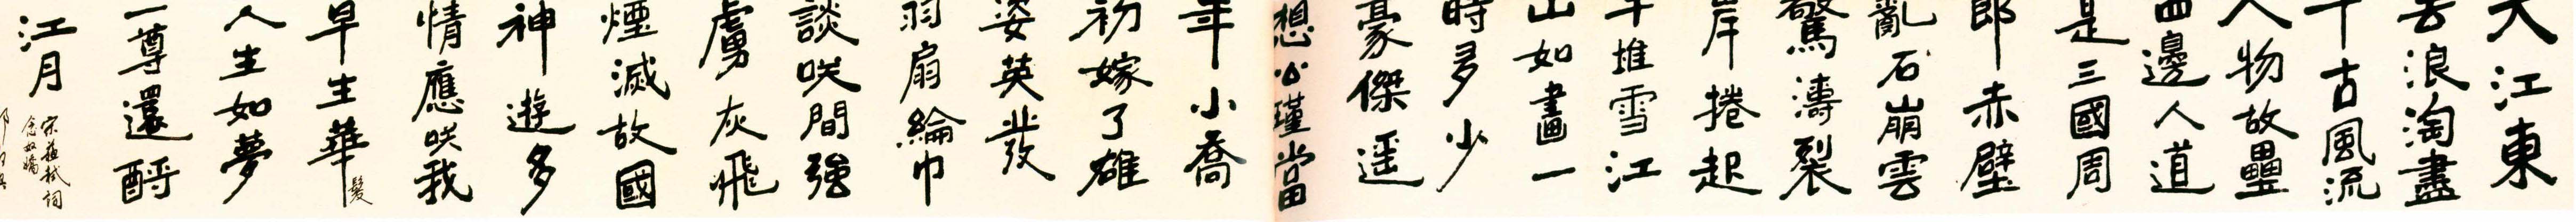 大江東
去浪淘盡
千古風流
人物故壘
四邊人道
是三國周
郎赤壁
亂石崩雲
驚濤裂
岸捲起
千堆雪江
山如畫一
時多少
豪傑遥
想公瑾當
年小喬
初嫁了雄
姿英發
羽扇綸巾
談咲間強
虜灰飛
煙滅故國
神遊多
情應咲我
早生華髮
人生如夢
一尊還酹
江月
宋蘇軾詞
念奴嬌